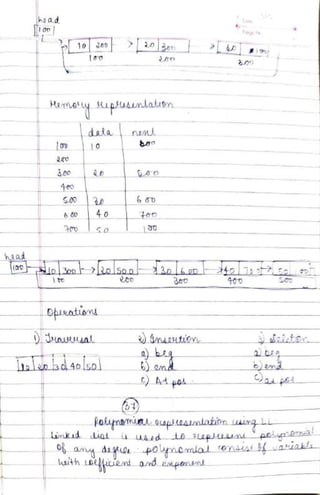 head
100
10 200 → 20 300 → 30 100
100 200 300
Memory Representation
data next
100 10 300
200
300 20 500
400
500 30 600
600 40 700
700 50 100
head
100 10 300 → 20 500 → 30 600 → 40
100 200 300 400 500
Operations
1) Traversal 2) Insertion 3) deletion
a) beg a) beg
b) end b) end
c) At pos c) at pos
10 20 30 40 50
37
Polynomial representation using LL
linked list is used to represent polynomial
of any degree polynomial consist of variable
with coefficient and exponent